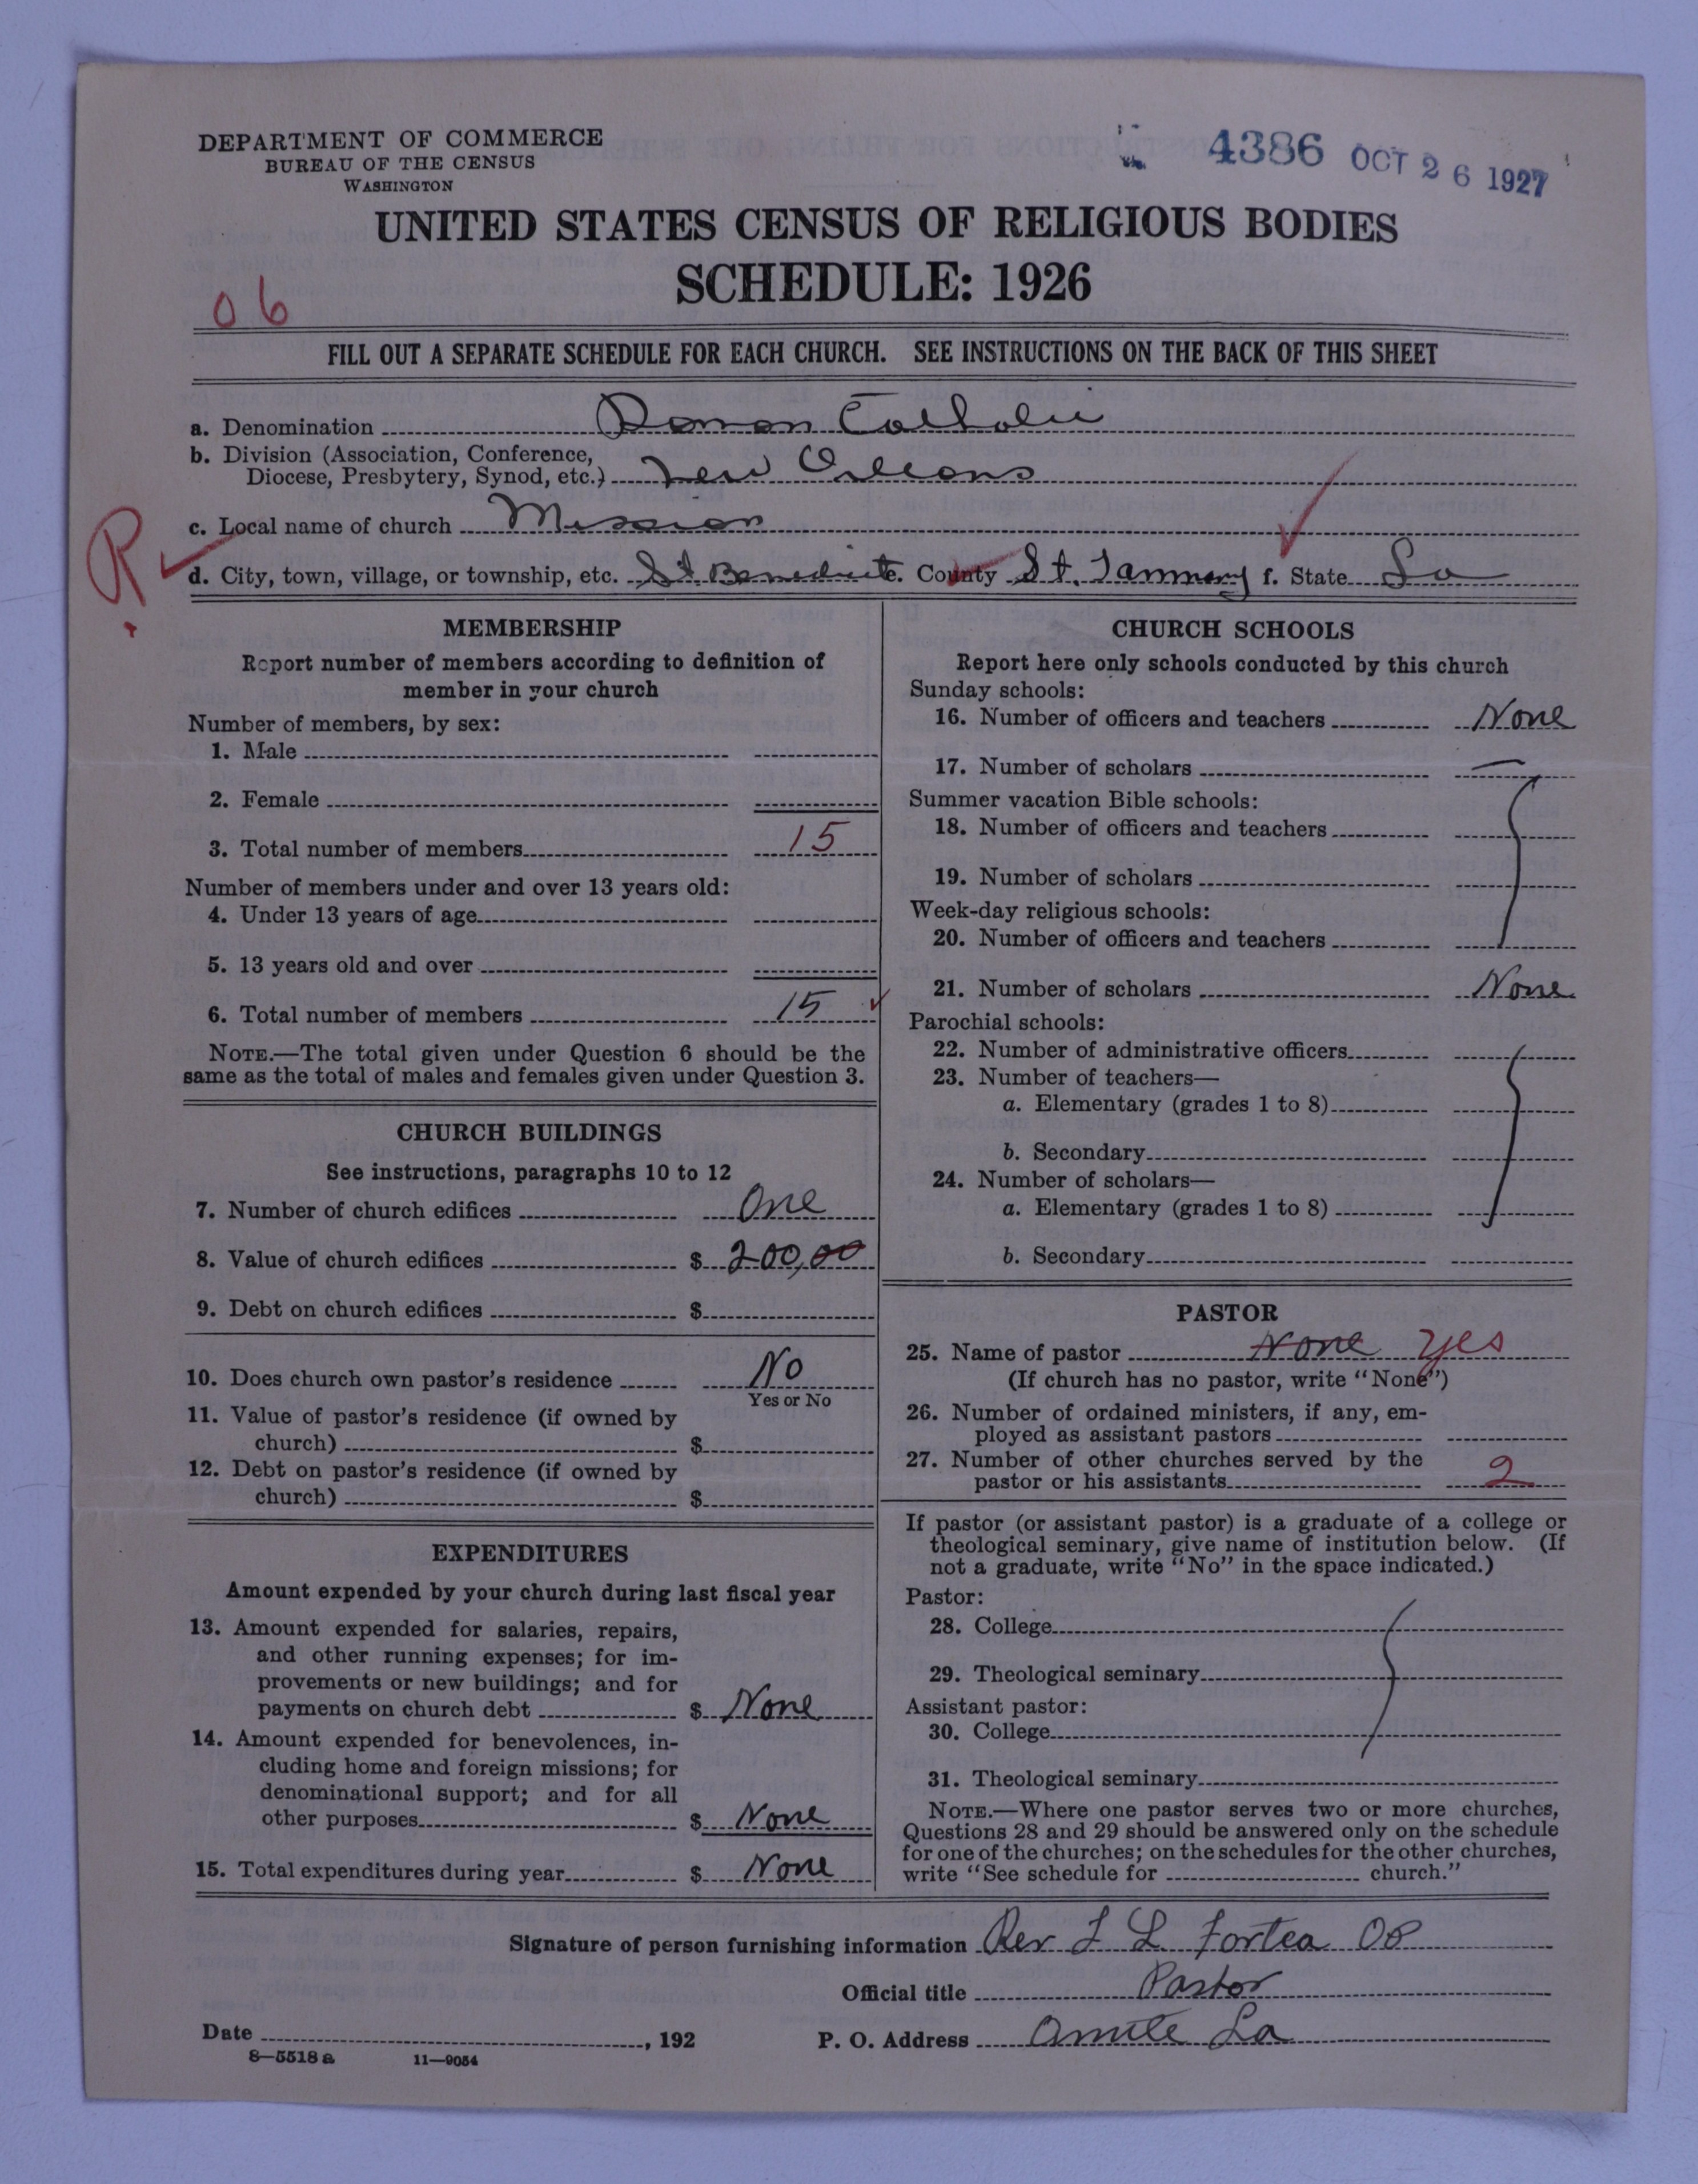 DEPARTMENT OF COMMERCE
BUREAU OF THE CENSUS
WASHINGTON
4386 OCT 26 1927
UNITED STATES CENSUS OF RELIGIOUS BODIES
SCHEDULE: 1926
06
FILL OUT A SEPARATE SCHEDULE FOR EACH CHURCH. SEE INSTRUCTIONS ON THE BACK OF THIS SHEET
a. Denomination Roman Catholic
b. Division (Association, Conference,
Diocese, Presbytery, Synod, etc.) New Orleans
c. Local name of church Mission
R
d. City, town, village, or township, etc. St Benedict e. County St. Tammany f. State La
MEMBERSHIP
Report number of members according to definition of
member in your church
Number of members, by sex:
1. Male
2. Female
3. Total number of members 15
Number of members under and over 13 years old:
4. Under 13 years of age
5. 13 years old and over
6. Total number of members 15
NOTE.—The total given under Question 6 should be the
same as the total of males and females given under Question 3.
CHURCH BUILDINGS
See instructions, paragraphs 10 to 12
7. Number of church edifices One
8. Value of church edifices $ 200,00
9. Debt on church edifices $
10. Does church own pastor's residence No
Yes or No
11. Value of pastor's residence (if owned by
church) $
12. Debt on pastor's residence (if owned by
church) $
EXPENDITURES
Amount expended by your church during last fiscal year
13. Amount expended for salaries, repairs,
and other running expenses; for im-
provements or new buildings; and for
payments on church debt $ None
14. Amount expended for benevolences, in-
cluding home and foreign missions; for
denominational support; and for all
other purposes $ None
15. Total expenditures during year $ None
CHURCH SCHOOLS
Report here only schools conducted by this church
Sunday schools:
16. Number of officers and teachers None
17. Number of scholars —
Summer vacation Bible schools:
18. Number of officers and teachers
19. Number of scholars
Week-day religious schools:
20. Number of officers and teachers
21. Number of scholars None
Parochial schools:
22. Number of administrative officers
23. Number of teachers—
a. Elementary (grades 1 to 8)
b. Secondary
24. Number of scholars—
a. Elementary (grades 1 to 8)
b. Secondary
PASTOR
25. Name of pastor None yes
(If church has no pastor, write "None")
26. Number of ordained ministers, if any, em-
ployed as assistant pastors
27. Number of other churches served by the
pastor or his assistants 2
If pastor (or assistant pastor) is a graduate of a college or
theological seminary, give name of institution below. (If
not a graduate, write "No" in the space indicated.)
Pastor:
28. College
29. Theological seminary
Assistant pastor:
30. College
31. Theological seminary
NOTE.—Where one pastor serves two or more churches,
Questions 28 and 29 should be answered only on the schedule
for one of the churches; on the schedules for the other churches,
write "See schedule for church."
Signature of person furnishing information Rev F L Fortea OP
Official title Pastor
Date , 192
P. O. Address Amite La
8—5518 a 11—9054